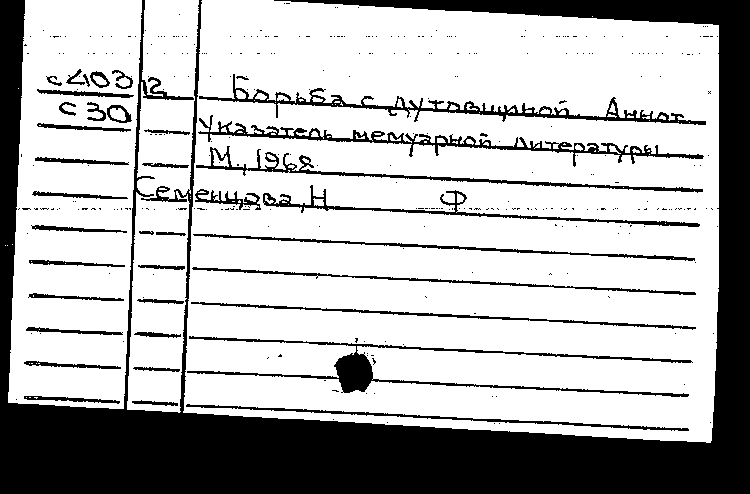 с403 12 Борьба с дутовщиной. Аннот.
С30 Указатель мемуарной литературы.
М., 1968
Семенцова, Н Ф